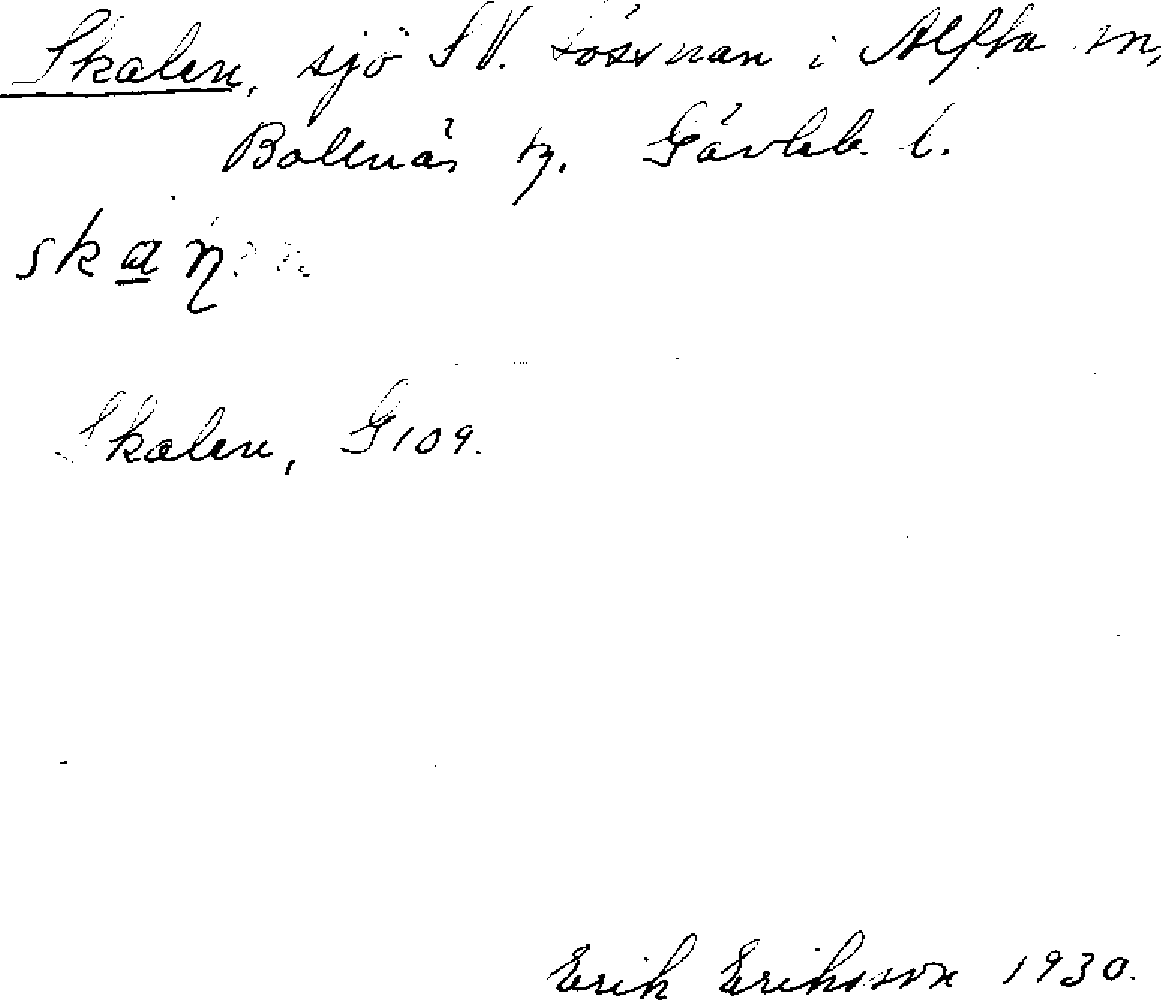 Skalen, sjö SV. Lössnan i Alfta sn,
Bollnäs tg. Gävleb. l.
Skalen, G 109.
Erik Eriksson 1930.